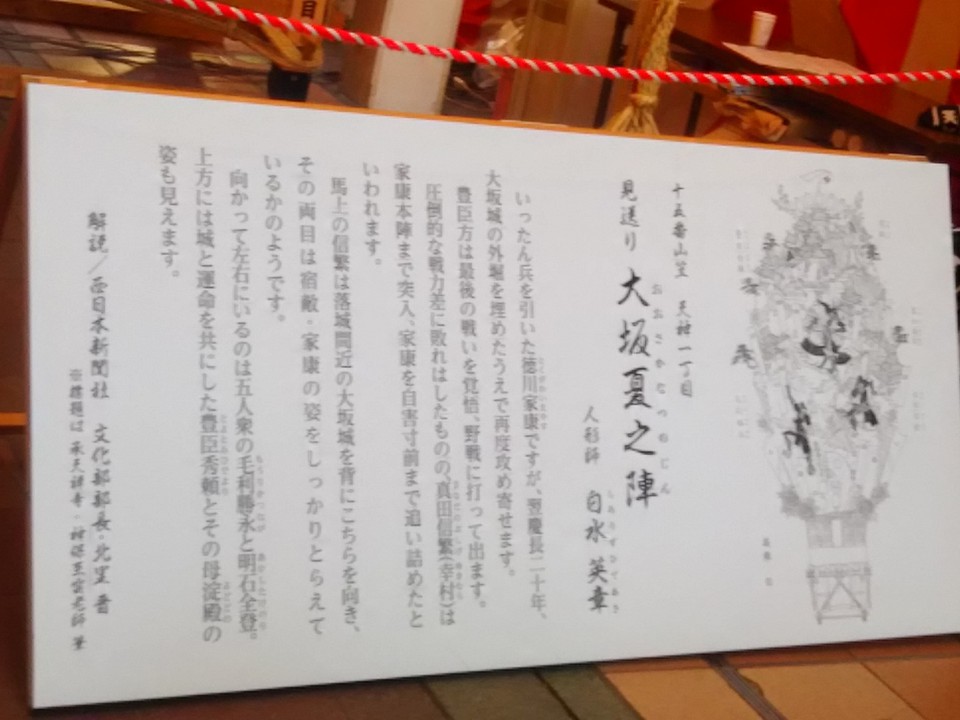 十五番山笠 天神一丁目
見送り 大坂夏之陣
おおさかなつのじん
人形師 白水英章
しろうずひであき
いったん兵を引いた徳川家康ですが、翌慶長二十年、
大坂城の外堀を埋めたうえで再度攻め寄せます。
豊臣方は最後の戦いを覚悟、野戦に打って出ます。
圧倒的な戦力差に敗れはしたものの、真田信繁(幸村)は
家康本陣まで突入、家康を自害寸前まで追い詰めたと
いわれます。
馬上の信繁は落城間近の大坂城を背にこちらを向き、
その両目は宿敵・家康の姿をしっかりとらえて
いるかのようです。
向かって左右にいるのは五人衆の毛利勝永と明石全登。
上方には城と運命を共にした豊臣秀頼とその母淀殿の
姿も見えます。
解説/西日本新聞社 文化部部長・北里晋
※標題は 承天禅寺・神保至雲老師 筆